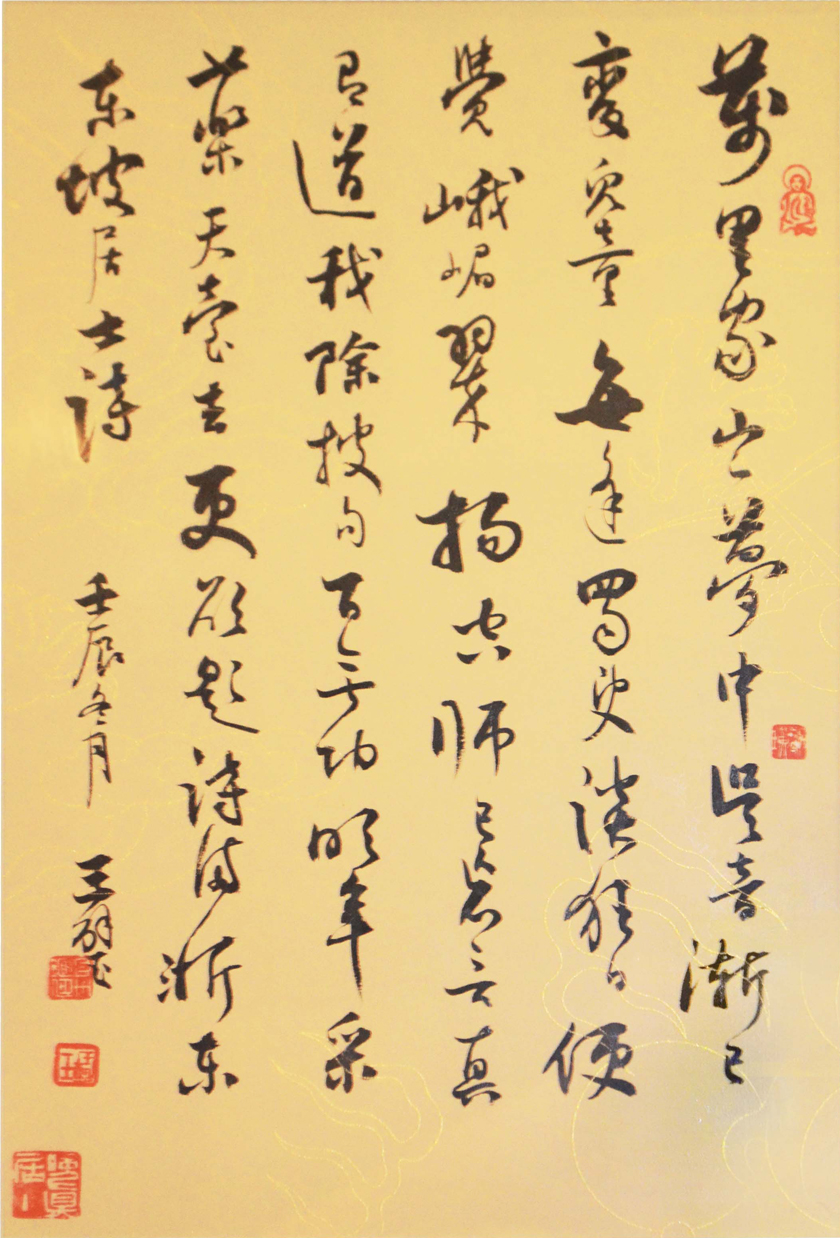 萬里家山一夢中吳音漸已
變兒童每逢蜀叟談終日便
覺峨嵋翠掃空師已忘言真
有道我除搜句百無功明年采
藥天臺去更欲題詩滿浙東
東坡居士詩 壬辰冬月